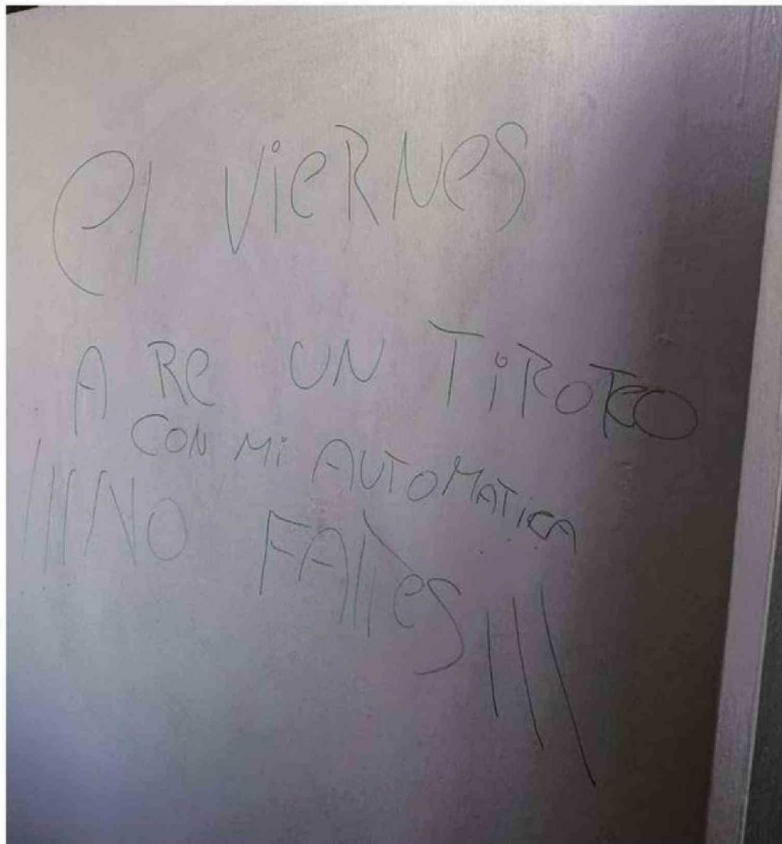 el vierNes
A Re UN TiROTeO
CON Mi AUTOMATICA
¡¡¡NO FAlTes!!!